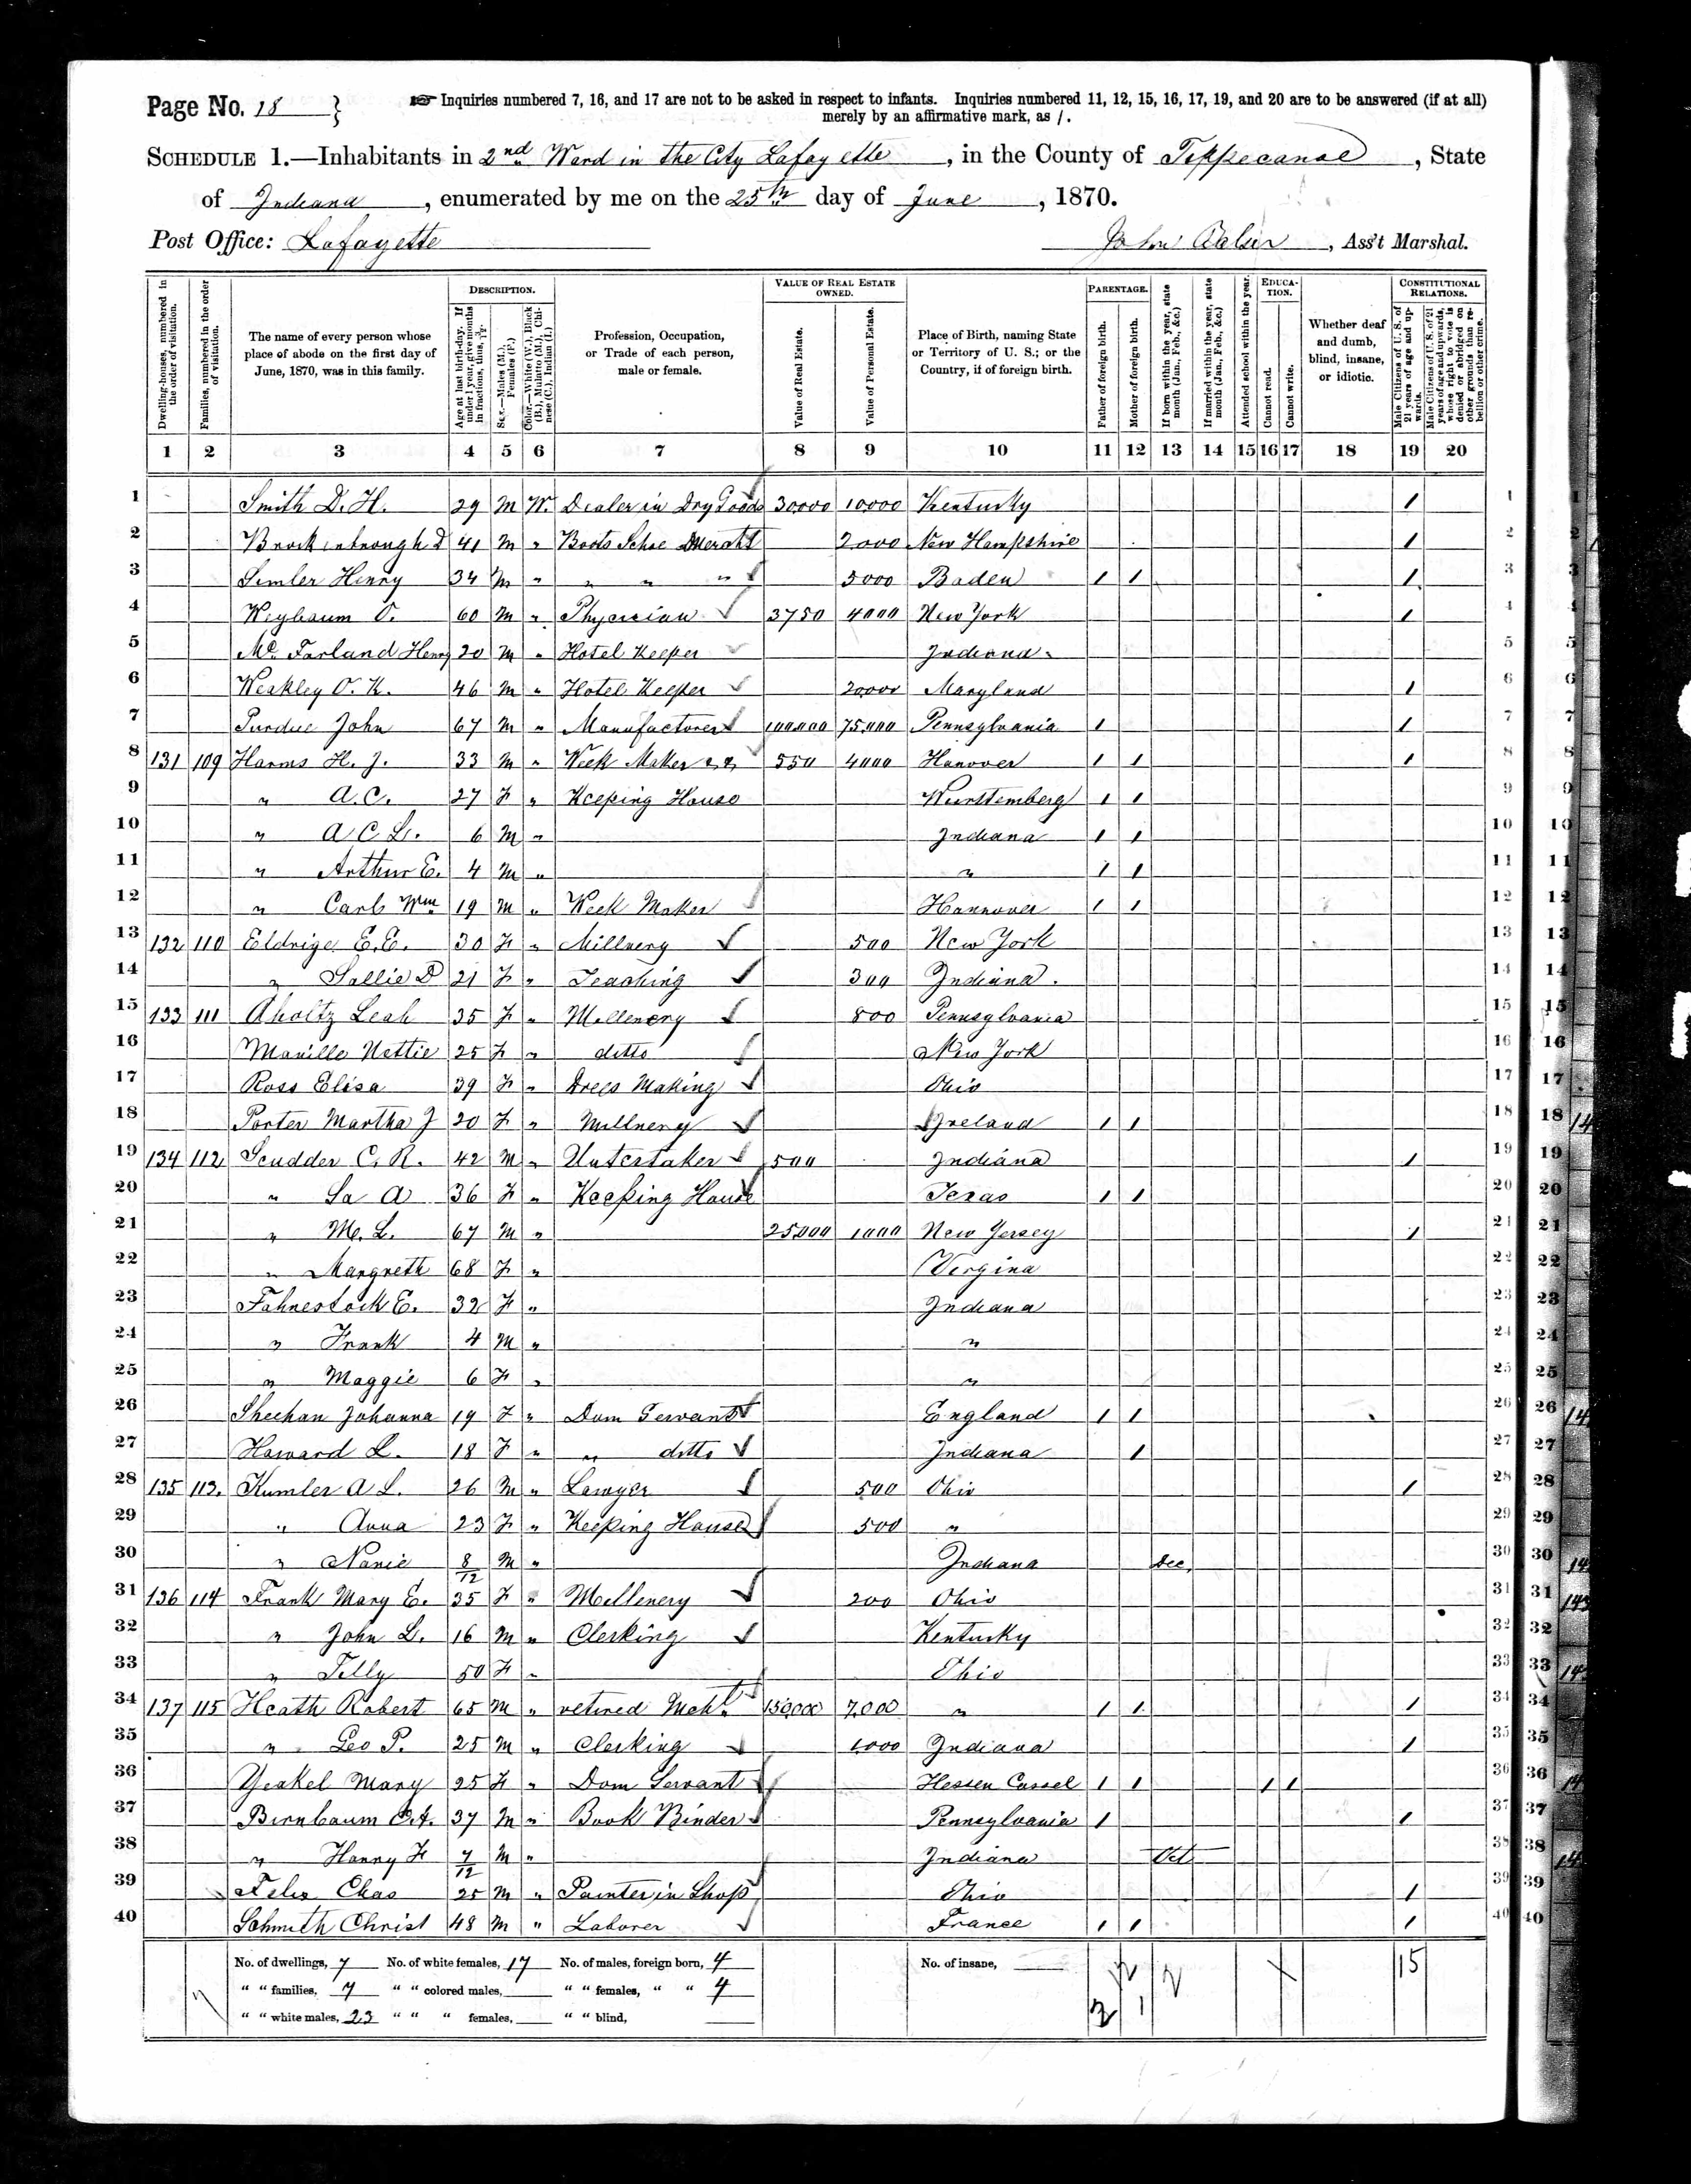 Page No. 18 }
☞ Inquiries numbered 7, 16, and 17 are not to be asked in respect to infants. Inquiries numbered 11, 12, 15, 16, 17, 19, and 20 are to be answered (if at all)
merely by an affirmative mark, as /.
SCHEDULE 1.—Inhabitants in 2nd Ward in the City Lafayette, in the County of Tippecanoe, State
of Indiana, enumerated by me on the 25th day of June, 1870.
Post Office: Lafayette
John, Ass't Marshal.
Dwelling-houses, numbered in the order of visitation.
Families, numbered in the order of visitation.
The name of every person whose place of abode on the first day of June, 1870, was in this family.
DESCRIPTION.
Age at last birth-day. If under 1 year, give months in fractions, thus, 3/12.
Sex.—Males (M.), Females (F.)
Color.—White (W.), Black (B.), Mulatto (M.), Chinese (C.), Indian (I.)
Profession, Occupation, or Trade of each person, male or female.
VALUE OF REAL ESTATE OWNED.
Value of Real Estate.
Value of Personal Estate.
Place of Birth, naming State or Territory of U. S.; or the Country, if of foreign birth.
PARENTAGE.
Father of foreign birth.
Mother of foreign birth.
If born within the year, state month (Jan., Feb., &c.)
If married within the year, state month (Jan., Feb., &c.)
EDUCATION.
Attended school within the year.
Cannot read.
Cannot write.
Whether deaf and dumb, blind, insane, or idiotic.
CONSTITUTIONAL RELATIONS.
Male Citizens of U. S. of 21 years of age and upwards.
Male Citizens of U. S. of 21 years of age and upwards, whose right to vote is denied or abridged on other grounds than rebellion or other crime.
1 2 3 4 5 6 7 8 9 10 11 12 13 14 15 16 17 18 19 20
1 Smith D. H. 29 M W. Dealer in Dry Goods 30000 10000 Kentucky / 1
2 Brockenbrough D 41 M " Boots Schoe 2000 New Hampshire / 2
3 Semler Henry 34 M " " " " 5000 Baden / / / 3
4 Weybaum O. 60 M " Physician 3750 4000 New York / 4
5 Mc Farland Henry 20 M " Hotel Keeper Indiana 5
6 Weakley O. K. 46 M " Hotel Keeper 20000 Maryland / 6
7 Purdue John 67 M " Manufactorer 100000 75000 Pennsylvania / / 7
8 131 109 Harms H. J. 33 M " Week Maker 550 4000 Hanover / / / 8
9 " A. C. 27 F " Keeping House Wurstemberg / / 9
10 " A C L. 6 M " Indiana / / 10
11 " Arthur E. 4 M " " / / 11
12 " Carl Wm 19 M " Week Maker Hannover / / 12
13 132 110 Eldrige E. E. 30 F " Millnery 500 New York 13
14 " Sallie D 21 F " Teaching 300 Indiana. 14
15 133 111 Aholtz Leah 35 F " Millenery 800 Pennsylvania 15
16 Maville Nettie 25 F " ditto New York 16
17 Ross Elisa 39 F " Drees Making Ohio 17
18 Porter Martha J 20 F " Millnery Ireland / / 18
19 134 112 Scudder C. R. 42 M " Untertaker 500 Indiana / 19
20 " Sa A 36 F " Keeping House Texas / / 20
21 " M. L. 67 M " 25000 1000 New Jersey / 21
22 " Margreth 68 F " Vergina 22
23 Fahnestock E. 32 F " Indiana 23
24 " Frank 4 M " " 24
25 " Maggie 6 F " " 25
26 Sheehan Johanna 19 F " Dom Servant England / / 26
27 Howard L. 18 F " " ditto Indiana / 27
28 135 113. Kumler A L. 26 M " Lawyer 500 Ohio / 28
29 " Anna 23 F " Keeping House 500 " 29
30 " Nanie 8/12 M " Indiana Dec. 30
31 136 114 Frank Mary E. 35 F " Millenery 200 Ohio 31
32 " John L. 16 M " Clerking Kentucky 32
33 " Tilly 50 F " Ohio 33
34 137 115 Heath Robert 65 M " retired Mcht. 150,000 7,000 " / / / 34
35 " Geo P. 25 M " Clerking 1,000 Indiana / 35
36 Yeakel Mary 25 F " Dom Servant Hessen Cassel / / / / 36
37 Birnbaum C. A. 37 M " Book Binder Pennsylvania / / 37
38 " Harry F 7/12 M " Indiana Oct 38
39 Felix Chas 25 M " Painter in Shop Ohio / 39
40 Schmith Christ 48 M " Laborer France / / / 40
No. of dwellings, 7 No. of white females, 17 No. of males, foreign born, 4 No. of insane, 15
" " families, 7 " " colored males, " " females, " " 4
" " white males, 23 " " " females, " " blind,